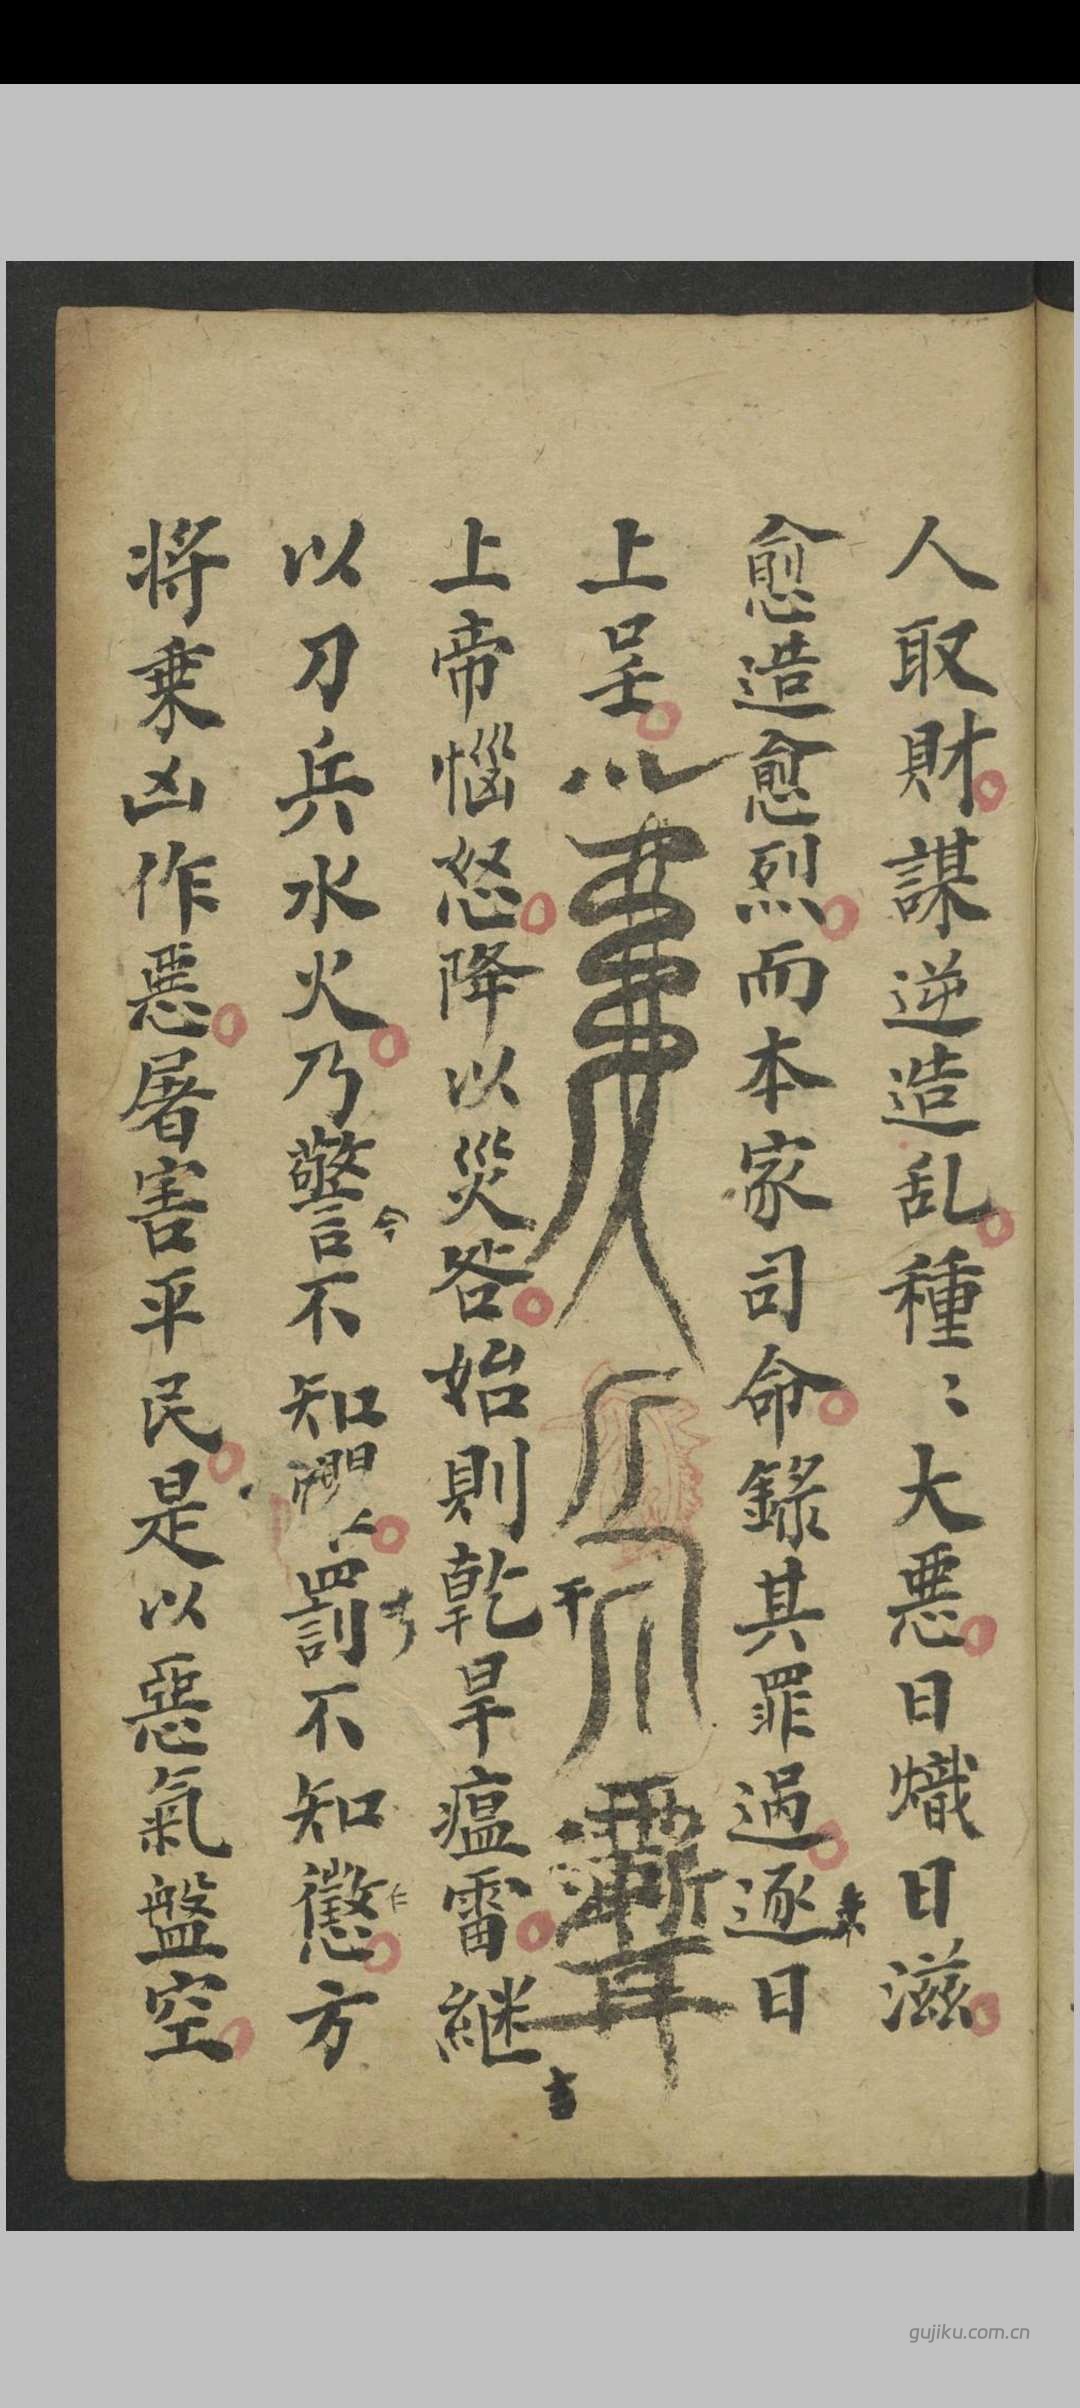 人取財謀逆造乱種〻大惡日熾日滋
愈造愈烈而本家司命錄其罪過逐日
上呈
上帝惱怒降以災咎始則乾旱瘟雷継
以刀兵水火乃警不知罰不知懲方
将乗凶作惡屠害平民是以惡氣盤空
gujiku.com.cn